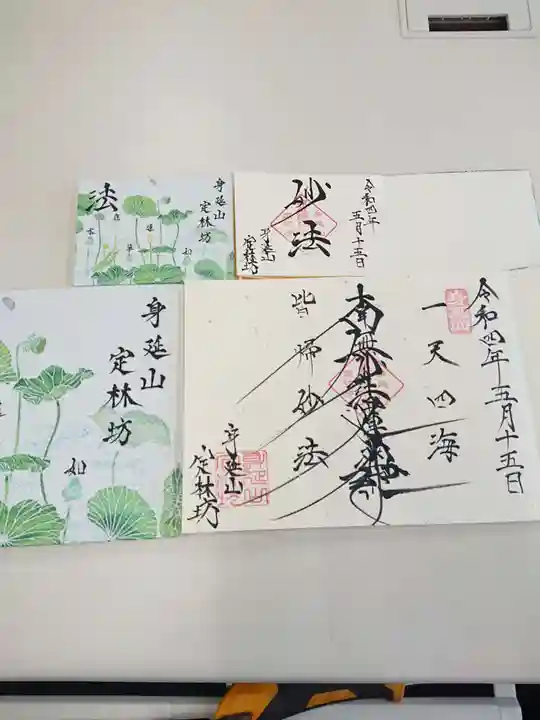 身延山
定林坊
如
法
令和四年
五月十五日
妙法
身延山
定林坊
身延山
定林坊
如
令和四年五月十五日
一天四海
南無妙法蓮華経
皆帰妙法
身延山
定林坊